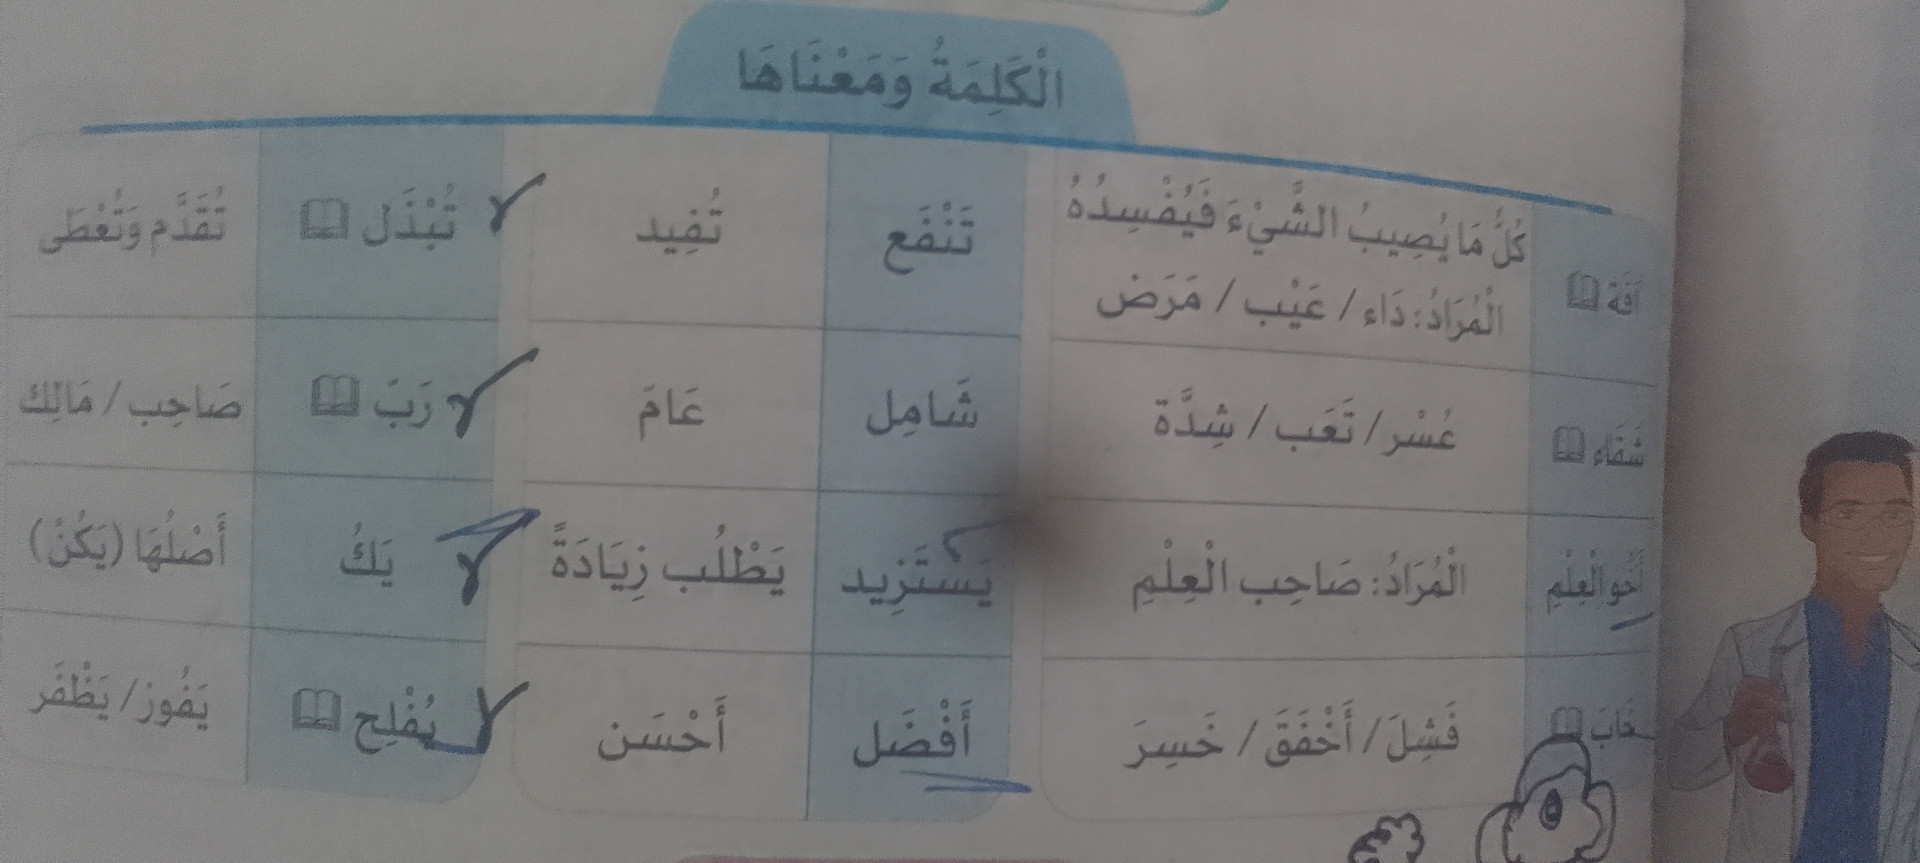 الْكَلِمَةُ وَمَعْنَاهَا
آفَة
كُلُّ مَا يُصِيبُ الشَّيْءَ فَيُفْسِدُهُ
الْمُرَادُ: دَاء / عَيْب / مَرَض
تَنْفَع
تُفِيد
تُبْذَل
تُقَدَّم وَتُعْطَى
شَقَاء
عُسْر / تَعَب / شِدَّة
شَامِل
عَامّ
رَبّ
صَاحِب / مَالِك
أَخُو الْعِلْمِ
الْمُرَادُ: صَاحِب الْعِلْمِ
يَسْتَزِيد
يَطْلُب زِيَادَةً
يَكُ
أَصْلُهَا (يَكُنْ)
خَابَ
فَشِلَ / أَخْفَقَ / خَسِرَ
أَفْضَل
أَحْسَن
يُفْلِح
يَفُوز / يَظْفَر